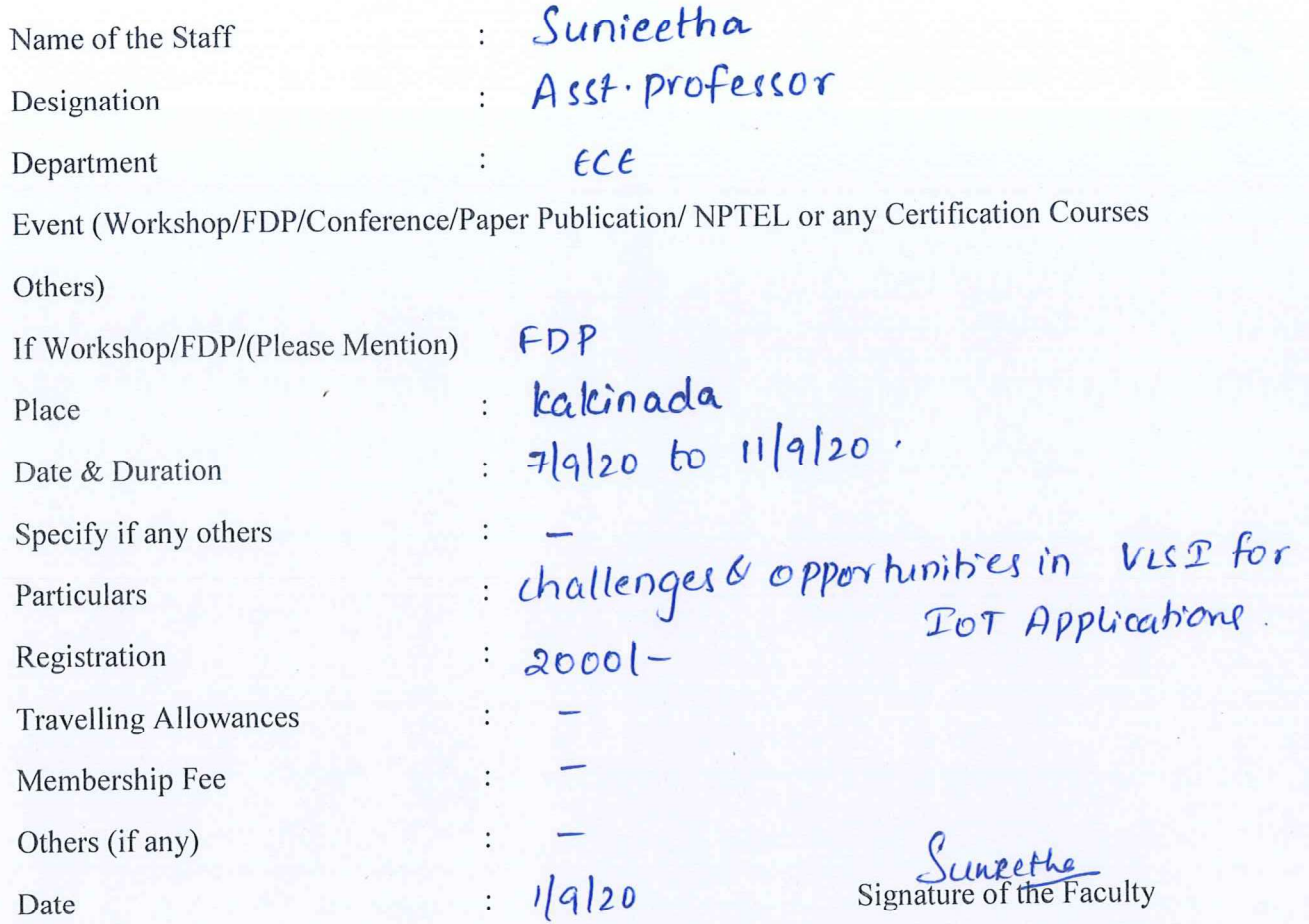 Name of the Staff : Sunieetha
Designation : Asst. professor
Department : ECE
Event (Workshop/FDP/Conference/Paper Publication/ NPTEL or any Certification Courses
Others)
If Workshop/FDP/(Please Mention) FDP
Place : kakinada
Date & Duration : 7/9/20 to 11/9/20.
Specify if any others : –
Particulars : challenges & opportunities in VLSI for
IOT Applications.
Registration : 2000/-
Travelling Allowances : –
Membership Fee : –
Others (if any) : –
Suneetha
Date : 1/9/20 Signature of the Faculty